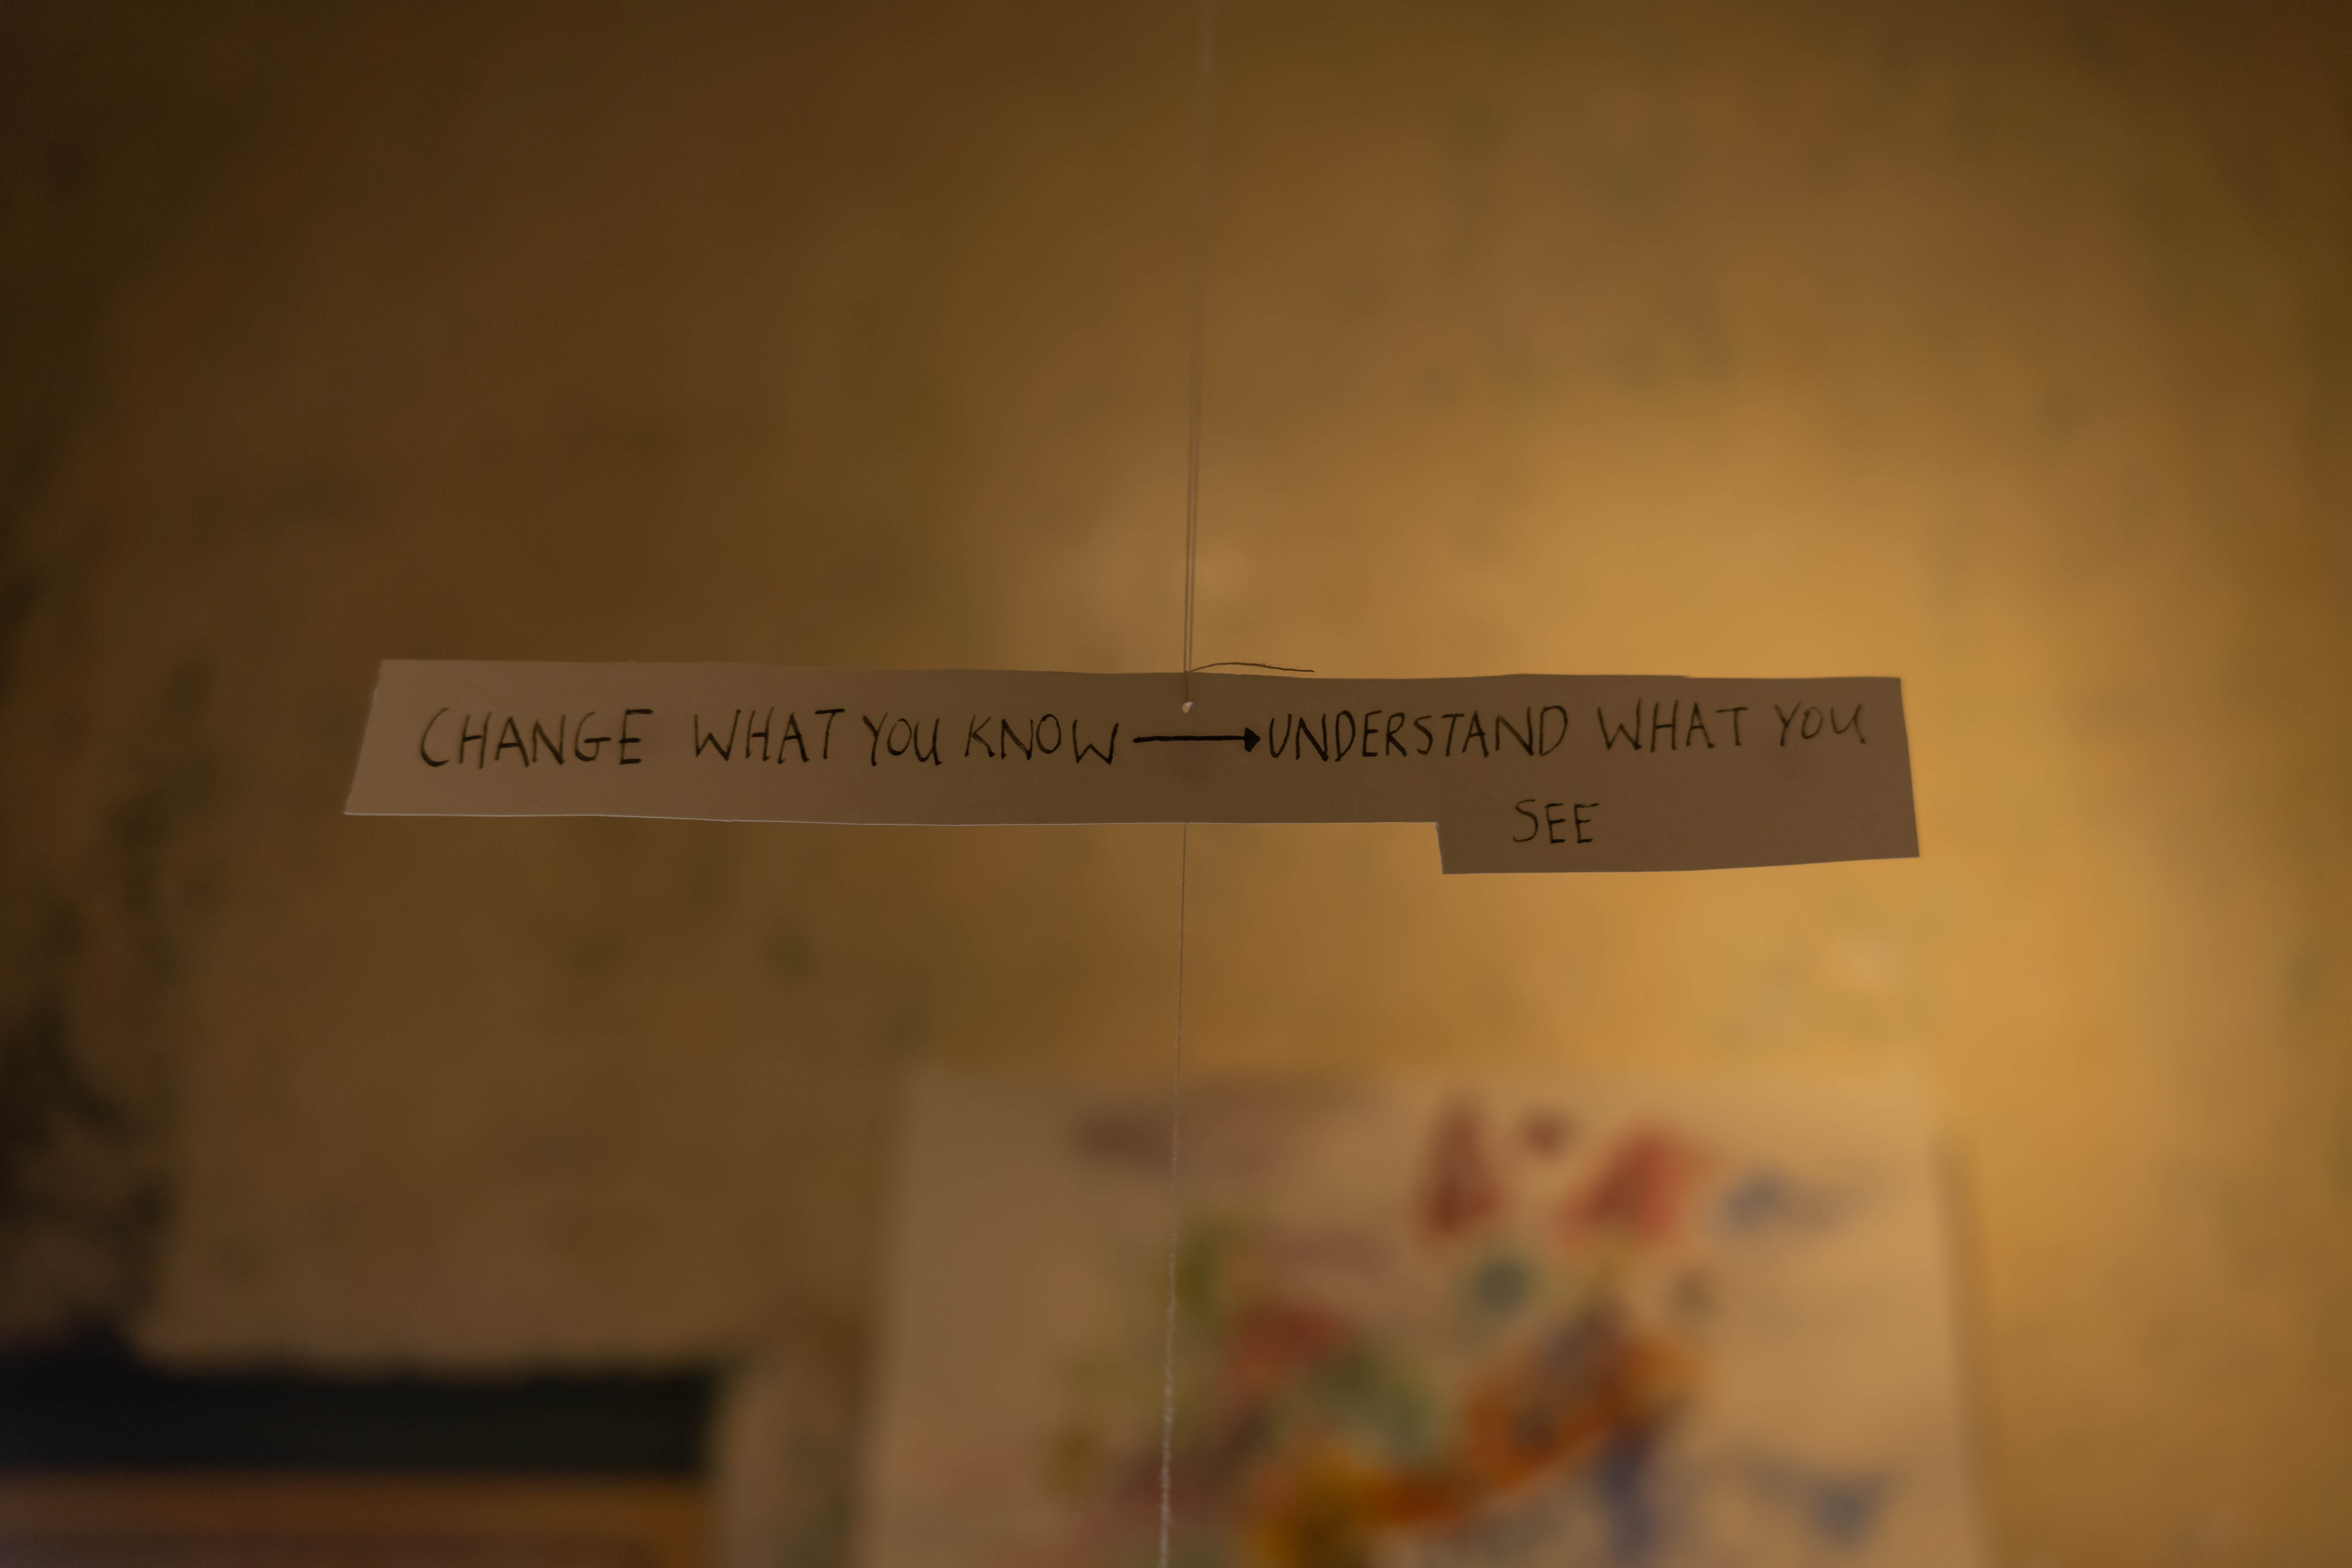 CHANGE WHAT YOU KNOW → UNDERSTAND WHAT YOU
SEE